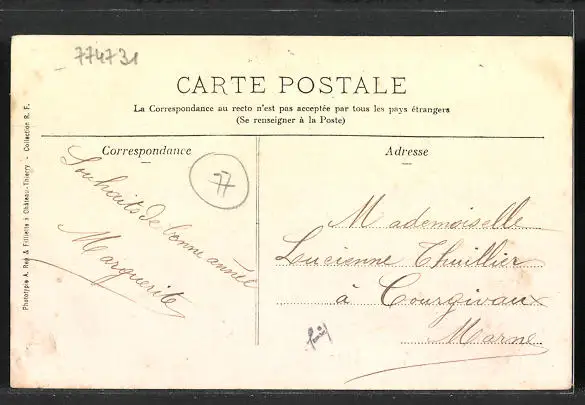 774731
CARTE POSTALE
La Correspondance au recto n'est pas acceptée par tous les pays étrangers
(Se renseigner à la Poste)
Correspondance
Souhaits de bonne année
Marguerite
77
Adresse
Mademoiselle
Lucienne Thuillier
à Courgivaux
Marne
Phototypie A. Rep & Filliette à Château-Thierry - Collection R. F.